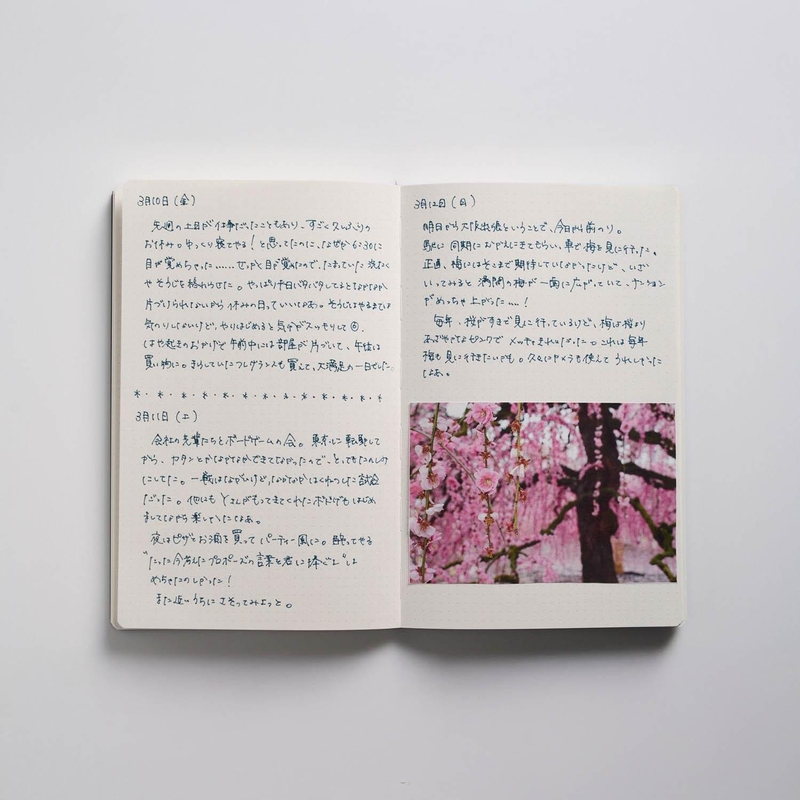 3月10日(金)
先週の土日が仕事だったこともあり、すごく久しぶりの
お休み。ゆっくり寝てやる!と思ってたのに、なぜか6:30に
目が覚めちゃった……せっかく目が覚めたので、たまっていた洗たく
やそうじを終わらせた。やっぱり平日バタバタしてるとなかなか
片づけられないから休みの日っていいなあ。そうじはやるまでは
気のりしないけど、やりはじめると気分がスッキリして◎。
はや起きのおかげで午前中には部屋が片づいて、午後は
買い物に。きらしていたフレグランスも買えて、大満足の一日でした。
3月11日(土)
会社の先輩たちとボードゲームの会。東京に転職して
から、カタンとかなかなかできてなかったので、とってもたのしみ
にしてた。一戦はながいけど、なかなかはくねつした試合
だった。他にもYさんがもってきてくれたボドゲもはじめ
ましてながら楽しかったなあ。
夜はピザとお酒を買ってパーティー風に。酔ってやる
"たった今考えたプロポーズの言葉を君に捧ぐよ"は
めちゃたのしかった!
また近いうちにさそってみよっと。
3月12日(日)
明日から大阪出張ということで、今日から前のり。
駅に同期におむかえにきてもらい、車で梅を見に行った。
正直、梅にはそこまで期待していなかったけど、いざ
いってみると満開の梅が一面に広がっていて、テンション
がめっちゃ上がった…!
毎年、桜がすきで見に行っているけど、梅は桜より
あざやかなピンクでメッチャきれいだった。これは毎年
梅も見に行きたいかも。久々にカメラも使えてうれしかった
なあ。